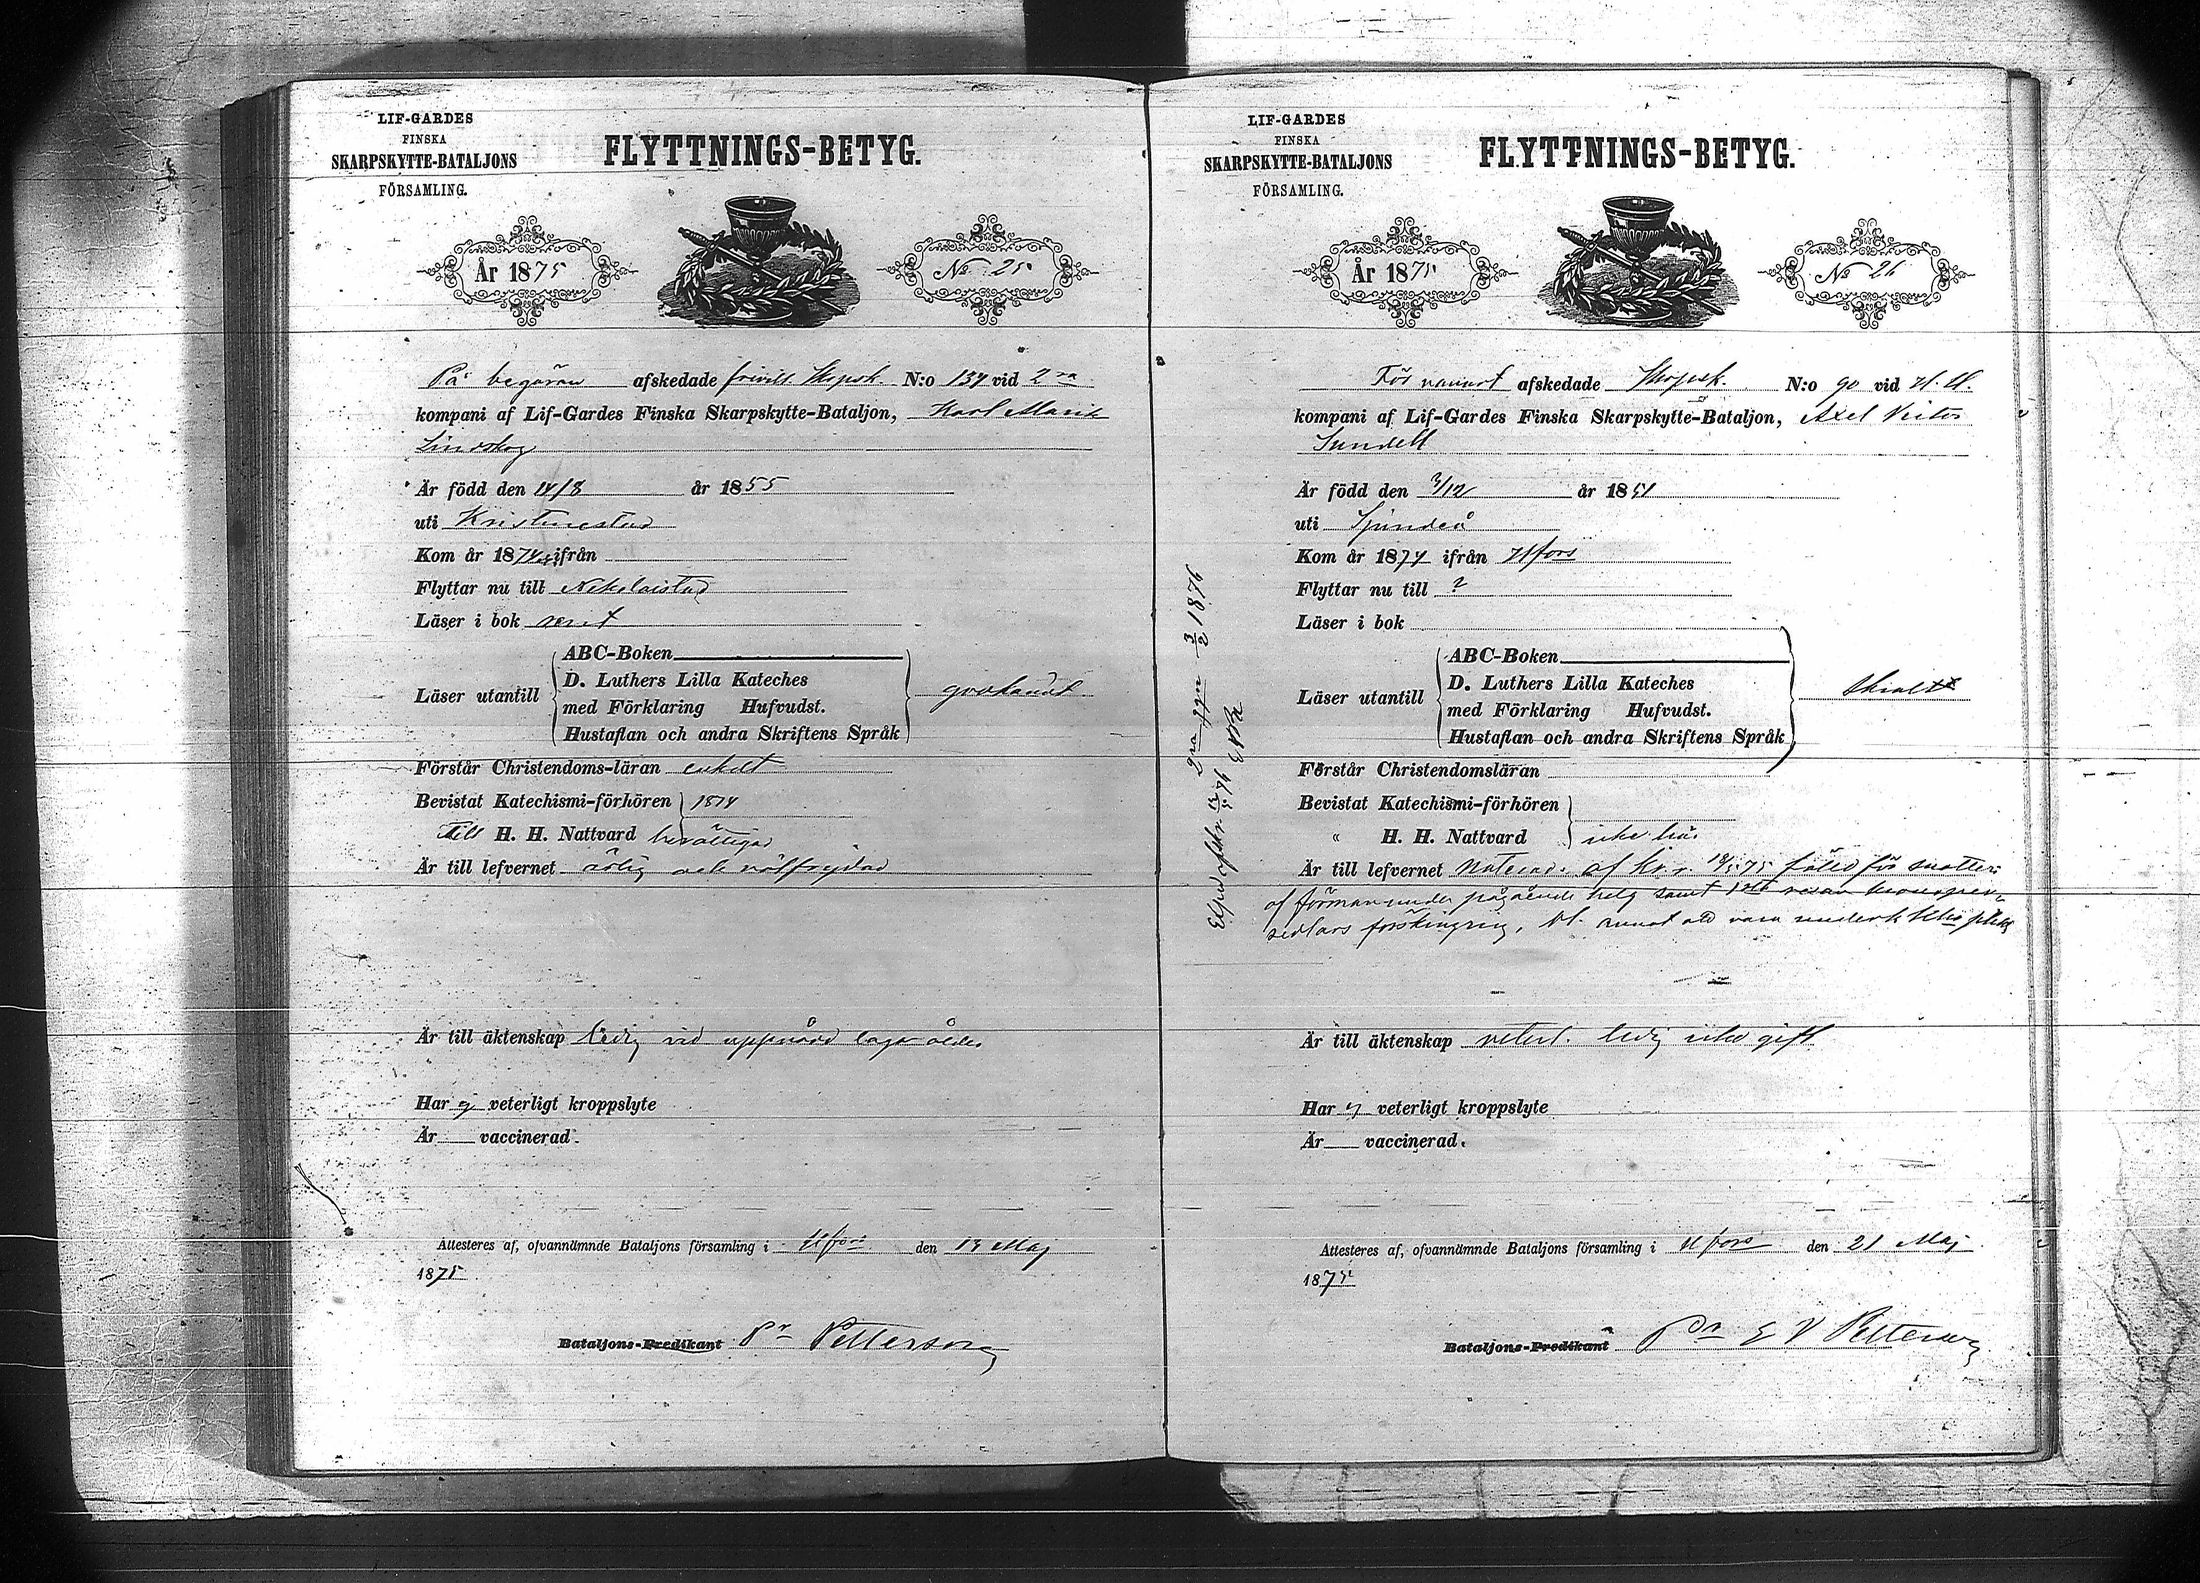 LIF-GARDES
FINSKA
SKARPSKYTTE-BATALJONS
FÖRSAMLING.
FLYTTNINGS-BETYG.
År 1875
No 25
På begäran afskedade frivill. Skpsk. N:o 134 vid 2ra
kompani af Lif-Gardes Finska Skarpskytte-Bataljon, Karl
Lindskog
Är född den 14/8 år 1855
uti Kristinestad
Kom år 1874 ifrån
Flyttar nu till Nikolaistad
Läser i bok rent
Läser utantill
ABC-Boken
D. Luthers Lilla Kateches
med Förklaring Hufvudst.
Hustaflan och andra Skriftens Språk
godkändt
Förstår Christendoms-läran enkelt
Bevistat Katechismi-förhören 1874
Till H. H. Nattvard berättigad
Är till lefvernet ärlig och välfrejdad
Är till äktenskap ledig vid uppnådd laga ålder
Har ej veterligt kroppslyte
Är vaccinerad.
Attesteres af, ofvannämnde Bataljons församling i Hfors den 13 Maj
1875
Bataljons-Predikant Pr Petterson
LIF-GARDES
FINSKA
SKARPSKYTTE-BATALJONS
FÖRSAMLING.
FLYTTNINGS-BETYG.
År 1875
No 26
För afskedade Skrpsk. N:o 90 vid
kompani af Lif-Gardes Finska Skarpskytte-Bataljon, Axel Victor
Sundell
Är född den 3/12 år 1851
uti Sjundeå
Kom år 1874 ifrån Hfors
Flyttar nu till ?
Läser i bok
Läser utantill
ABC-Boken
D. Luthers Lilla Kateches
med Förklaring Hufvudst.
Hustaflan och andra Skriftens Språk
Förstår Christendomsläran
Bevistat Katechismi-förhören
" H. H. Nattvard icke här
Är till lefvernet af 18/5 75 för
af förman under pågående helg samt
förskingring,
Är till äktenskap veterl. ledig icke gift
Har ej veterligt kroppslyte
Är vaccinerad.
Attesteres af, ofvannämnde Bataljons församling i Hfors den 21 Maj
1875
Bataljons-Predikant Pr E V Petterson
2ra 3/2 1876